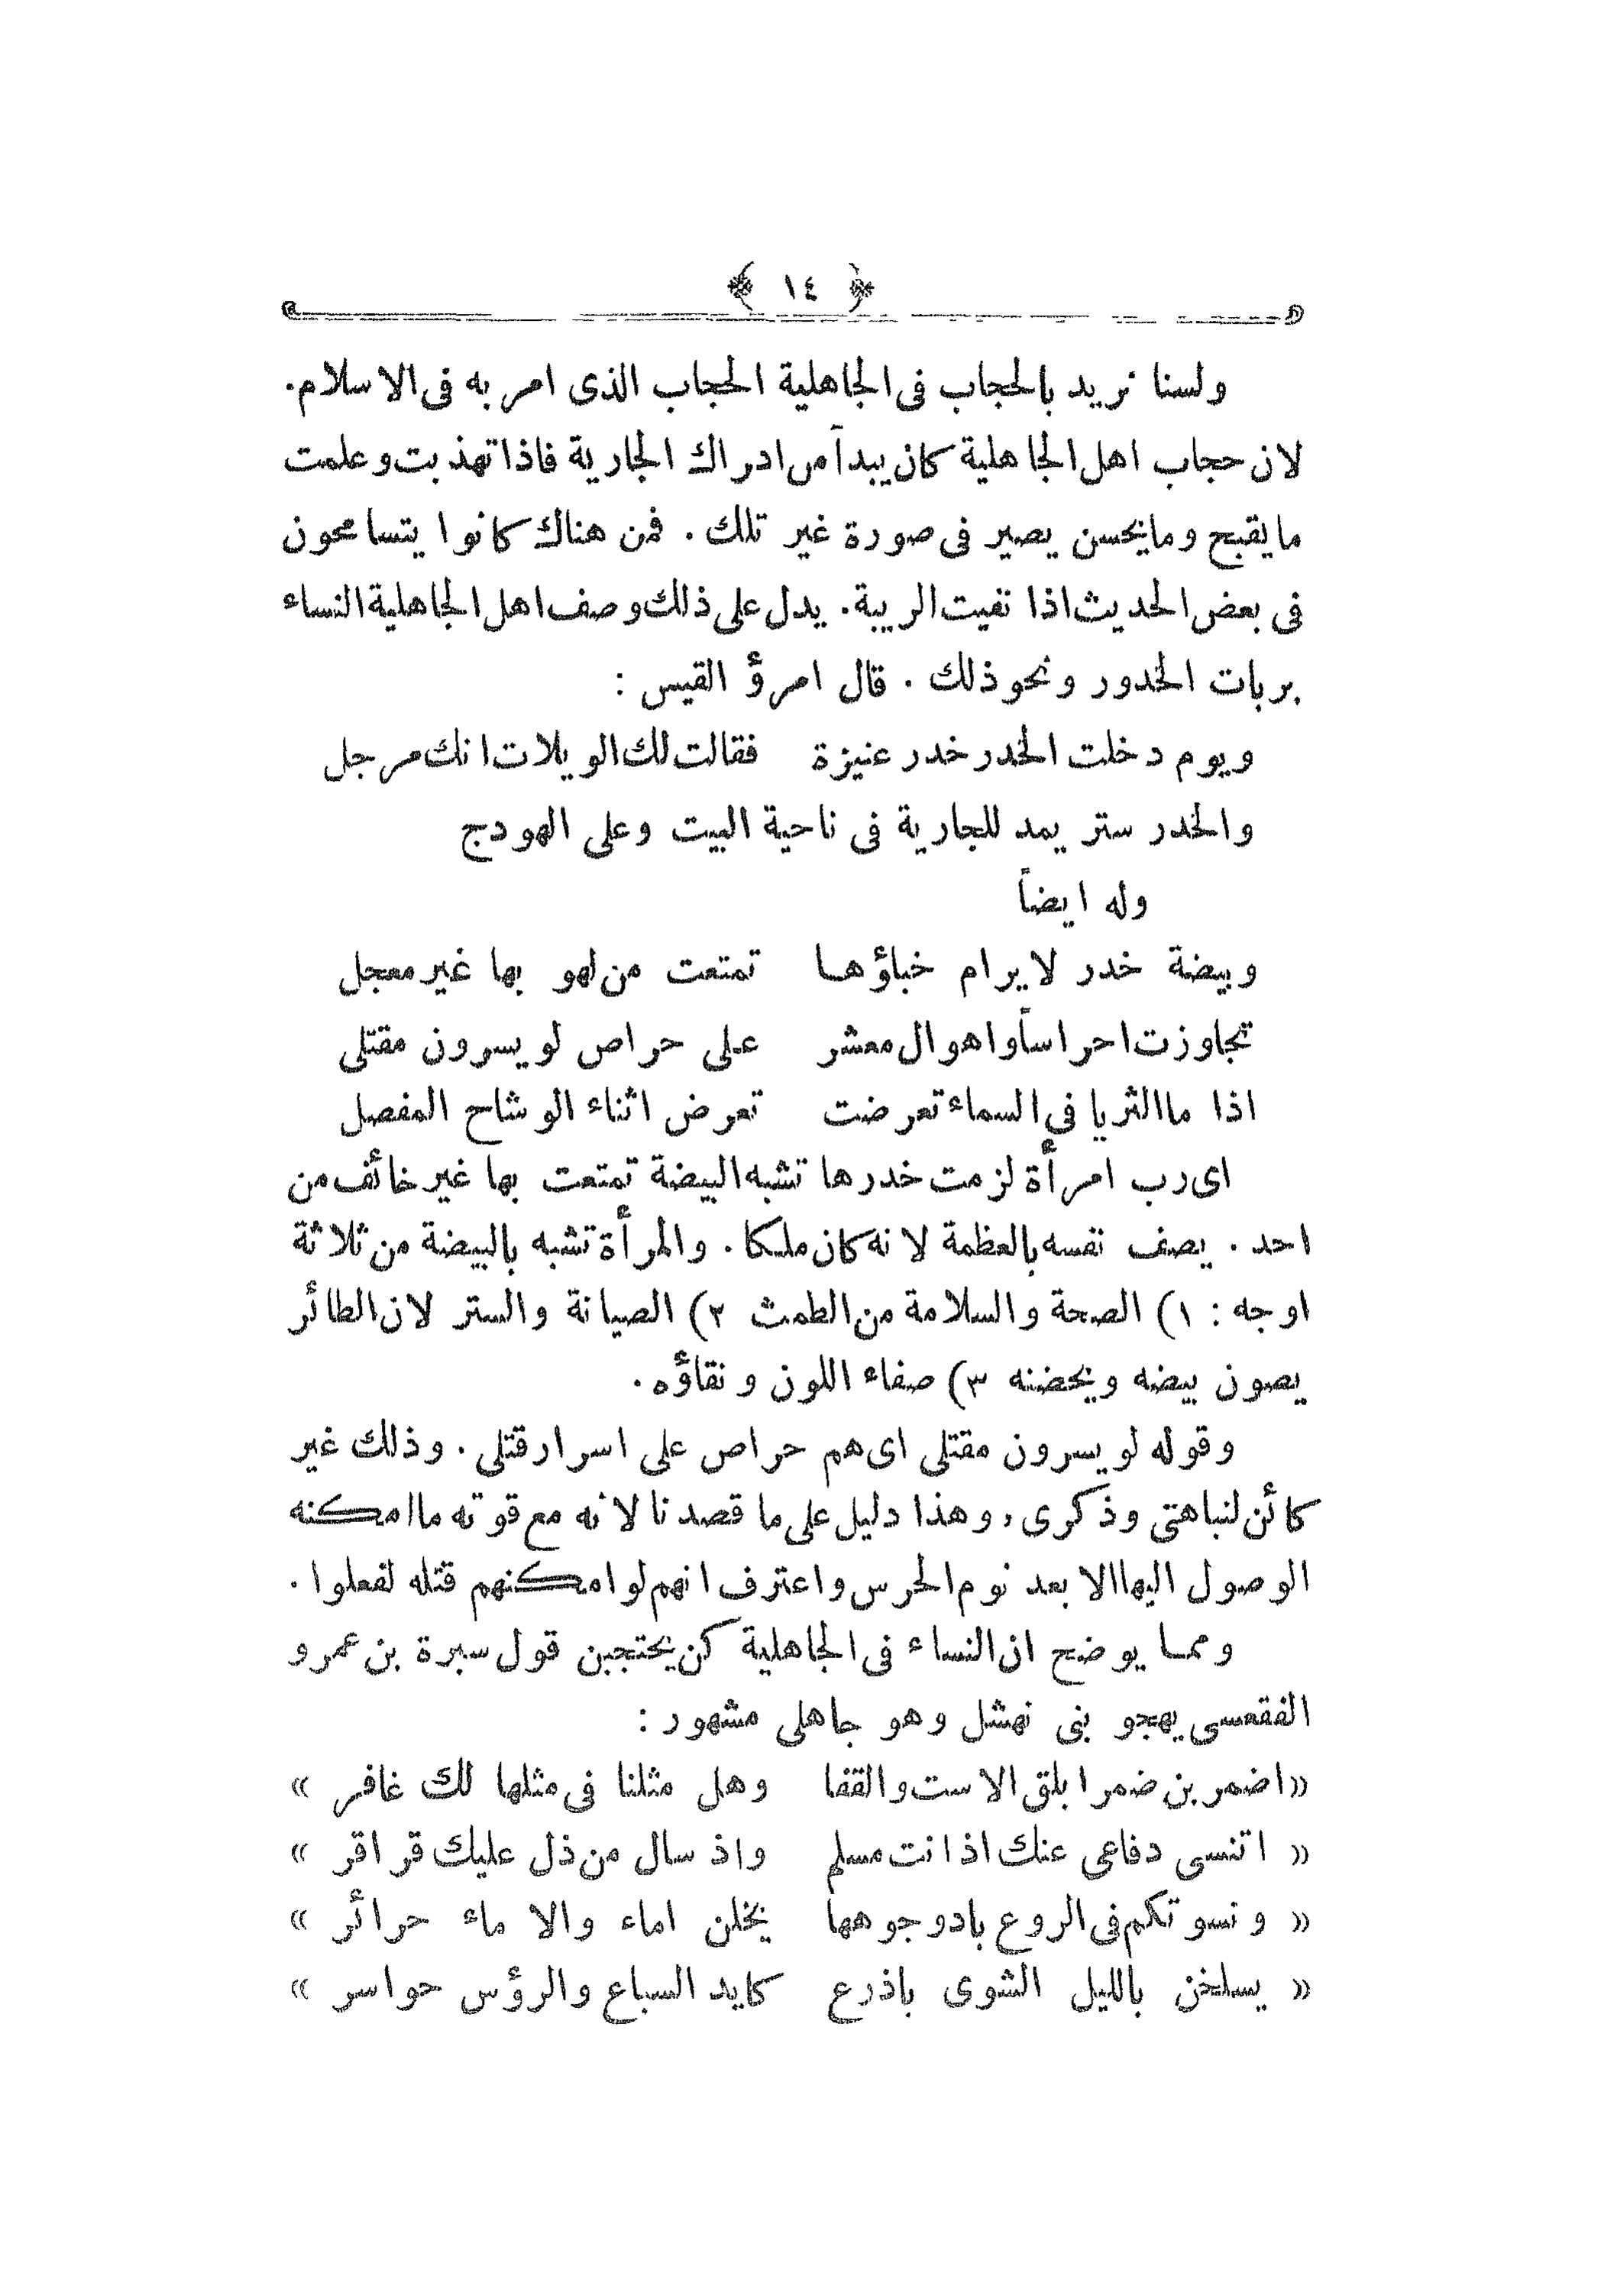 ﴿ ١٤ ﴾
ولسنا نريد بالحجاب فى الجاهلية الحجاب الذى امر به فى الاسلام.
لان حجاب اهل الجاهلية كان يبدأ من ادراك الجارية فاذا تهذبت وعلمت
ما يقبح وما يحسن يصير فى صورة غير تلك . فمن هناك كانوا يتسامحون
فى بعض الحديث اذا نفيت الريبة. يدل على ذلك وصف اهل الجاهلية النساء
بربات الخدور ونحو ذلك . قال امرؤ القيس :
ويوم دخلت الخدر خدر عنيزة فقالت لك الويلات انك مرجل
والخدر ستر يمد للجارية فى ناحية البيت وعلى الهودج
وله ايضاً
وبيضة خدر لا يرام خباؤها تمتعت من لهو بها غير معجل
تجاوزت احراساً واهوال معشر على حراص لو يسرون مقتلى
اذا ما الثريا فى السماء تعرضت تعرض اثناء الوشاح المفصل
اى رب امرأة لزمت خدرها تشبه البيضة تمتعت بها غير خائف من
احد . يصف نفسه بالعظمة لانه كان ملكا . والمرأة تشبه بالبيضة من ثلاثة
اوجه : ١) الصحة والسلامة من الطمث ٢) الصيانة والستر لان الطائر
يصون بيضه ويحضنه ٣) صفاء اللون ونقاؤه .
وقوله لو يسرون مقتلى اى هم حراص على اسرار قتلى . وذلك غير
كائن لنباهتى وذكرى, وهذا دليل على ما قصدنا لانه مع قوته ما امكنه
الوصول اليها الا بعد نوم الحرس واعترف انهم لو امكنهم قتله لفعلوا .
ومما يوضح ان النساء فى الجاهلية كن يحتجبن قول سبرة بن عمرو
الفقعسى يهجو بنى نهشل وهو جاهلى مشهور :
«اضمر بن ضمرا بلق الاست والقفا وهل مثلنا فى مثلها لك غافر »
« اتنسى دفاعى عنك اذ انت مسلم واذ سال من ذل عليك قراقر »
« ونسوتكم فى الروع باد وجوهها يخلن اماء والاماء حرائر »
« يسلخن بالليل الشوى باذرع كايد السباع والرؤس حواسر »